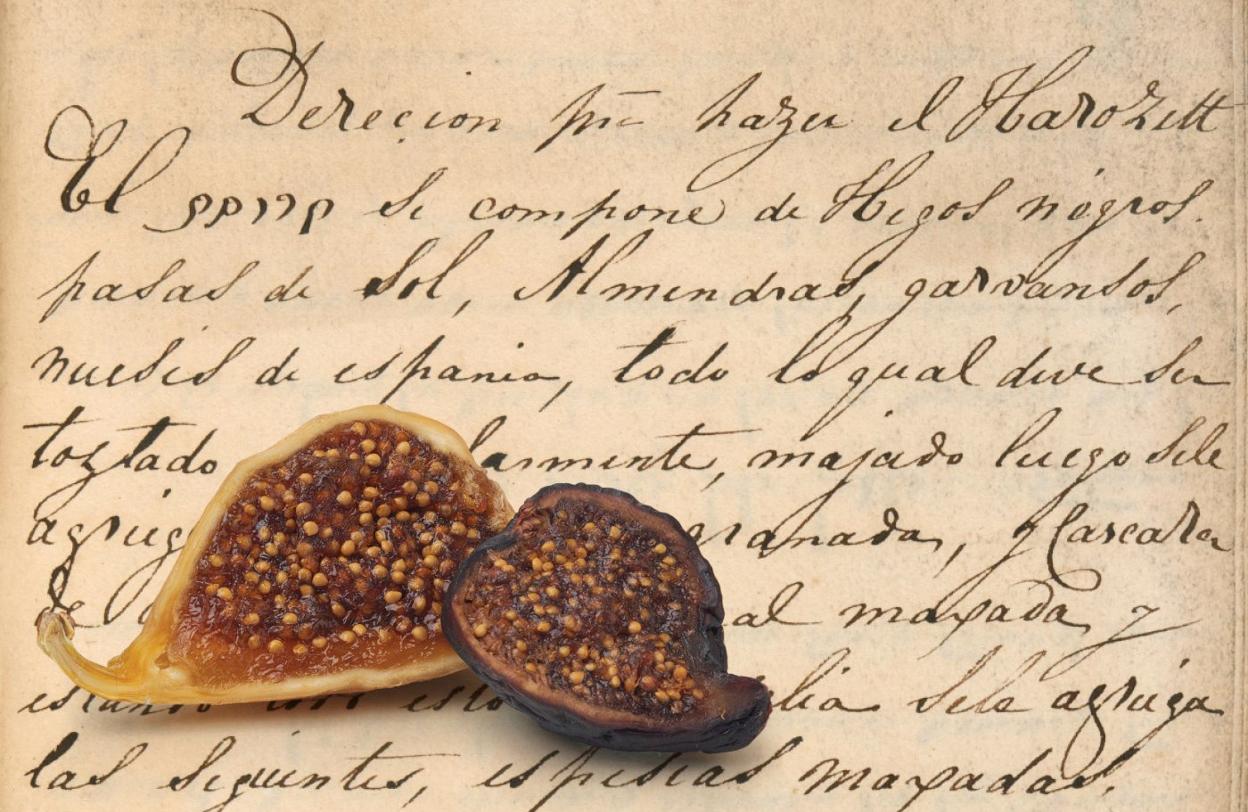 Dereçion pra hazer el Harozett
El se compone de Higos negros.
pasas de sol, Almendras, garvansos,
nueses de espania, todo lo qual deve ser
toztado larmente, majado luego sele
agrieg granada, y Cascara
de al maxada y
estando con esto lia sele agriega
las siguintes, espesias maxadas.